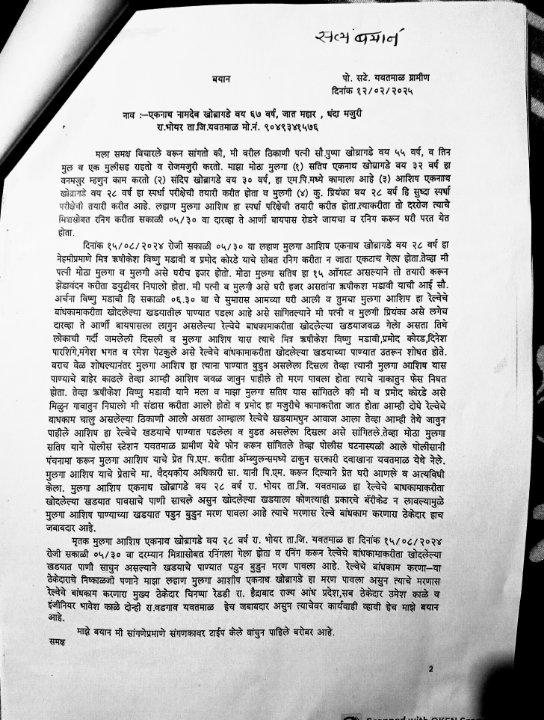 सत्य बयान
बयान
पो. सटे. यवतमाळ ग्रामीण
दिनांक १२/०२/२०२५
नाव :-एकनाथ नामदेव खोब्रागडे वय ६७ वर्ष, जात महार , धंदा मजुरी
रा.भोयर ता.जि.यवतमाळ मो.नं. ९०४९३४१५७६
मला समक्ष विचारले वरून सांगतो की, मी वरील ठिकाणी पत्नी सौ.पुष्पा खोब्रागडे वय ५५ वर्ष, व तिन
मुल व एक मुलीसह राहतो व रोजमजुरी करतो. माझा मोठा मुलगा (१) सतिष एकनाथ खोब्रागडे वय ३२ वर्ष हा
वनमजुर म्हणुन काम करतो (२) संदिप खोब्रागडे वय ३० वर्ष, हा एम.पि.मध्ये कामाला आहे (३) आशिष एकनाथ
खोब्रागडे वय २८ वर्ष हा स्पर्धा परीक्षेची तयारी करीत होता व मुलगी (४) कु. प्रियंका वय २८ वर्ष हि सुध्दा स्पर्धा
परीक्षेची तयारी करीत आहे. लहाण मुलगा आशिष हा स्पर्धा परीक्षेची तयारी करीत होता.त्याकरीता तो दररोज त्याचे
मित्रासोबत रनिंग करीता सकाळी ०५/३० वा दारव्हा ते आर्णी बायपास रोडने जायचा व रनिंग करून घरी परत येत
होता.
दिनांक १५/०८/२०२४ रोजी सकाळी ०५/३० वा लहाण मुलगा आशिष एकनाथ खोब्रागडे वय २८ वर्ष हा
नेहमीप्रमाणे मित्र ऋषीकेश विष्णु मडावी व प्रमोद कोरडे याचे सोबत रनिंग करीता न जाता एकटाच गेला होता.तेव्हा मी
पत्नी मोठा मुलगा व मुलगी असे घरीच हजर होतो. मोठा मुलगा सतिष हा १५ ऑगस्ट असल्याने तो तयारी करून
झेंडावंदन करीता डयुटीवर निघाला होता. मी पत्नी व मुलगी असे घरी हजर असतांना ऋषीकश मडावी याची आई सौ.
अर्चना विष्णु मडावी हि सकाळी ०६.३० वा चे सुमारास आमच्या घरी आली व तुमचा मुलगा आशिष हा रेल्वेचे
बांधकामाकरीता खोदलेल्या खडयातील पाण्यात पडला आहे असे सांगितल्याने मी पत्नी व मुलगी प्रियंका असे लगेच
दारव्हा ते आर्णी बायपासला लागुन असलेल्या रेल्वेचे बाधकामाकरीता खोदलेल्या खडयाजवळ गेलो असता तिथे
लोकाची गर्दी जमलेली दिसली व मुलगा आशिष यास त्याचे मित्र ऋषीकेश विष्णु मडावी,प्रमोद कोरडे,दिनेश
पारशिगे,मंगेश भगत व रमेश पेटकुले असे रेल्वेचे बांधकामाकरीता खोदलेल्या खडयाच्या पाण्यात उतरून शोधत होते.
बराच वेळ शोधल्यानंतर मुलगा आशिष हा त्यांना पाण्यात बुडुन असलेला दिसला तेव्हा त्यांनी मुलगा आशिष यास
पाण्याचे बाहेर काढले तेव्हा आम्ही आशिष जवळ जावुन पाहीले तो मरण पावला होता त्याचे नाकातुन फेस निघत
होता. तेव्हा ऋषीकेश विष्णु मडावी याने मला व माझा मुलगा सतिष यास सांगितले की मी व प्रमोद कोरडे असे
मिळुन गावातुन निघालो मी संडास करीता आलो होतो व प्रमोद हा मजुरीचे कामाकरीता जात होता आम्ही दोघे रेल्वेचे
बाधकाम चालु असलेल्या ठिकाणी आलो असता आम्हाला रेल्वेचे खडयामधुन आवाज आला तेव्हा आम्ही तेथे जावुन
पाहीले आशिष हा रेल्वेचे खडयाचे पाण्यात पडलेला व बुडत असलेला दिसला असे सांगितले.तेव्हा मोठा मुलगा
सतिष याने पोलीस स्टेशन यवतमाळ ग्रामीण येथे फोन करून सांगितले तेव्हा पोलीस घटनास्थळी आले पोलीसांनी
पंचनामा करून मुलगा आशिष याचे प्रेत पि.एम. करीता ॲम्ब्युलन्समध्ये टाकुन सरकारी दवाखाना यवतमाळ येथे नेले.
मुलगा आशिष याचे प्रेताचे मा. वैदयकीय अधिकारी सा. यांनी पि.एम. करून दिल्याने प्रेत घरी आणले व अत्यविधी
केला. मुलगा आशिष एकनाथ खोब्रागडे वय २८ वर्ष रा. भोयर ता.जि. यवतमाळ हा रेल्वेचे बांधकामाकरीता
खोदलेल्या खडयात पावसाचे पाणी साचले असुन खोदलेल्या खडयाला कोणत्याही प्रकारचे बॅरीकेट न लावल्यामुळे
मुलगा आशिष पाण्याच्या खडयात पडुन बुडुन मरण पावला आहे त्याचे मरणास रेल्वे बांधकाम करणारा ठेकेदार हाच
जबाबदार आहे.
मृतक मुलगा आशिष एकनाथ खोब्रागडे वय २८ वर्ष रा. भोयर ता.जि. यवतमाळ हा दिनांक १५/०८/२०२४
रोजी सकाळी ०५/३० वा दरम्यान मित्रासोबत रनिंगला गेला होता व रनिंग करून रेल्वेचे बांधकामाकरीता खोदलेल्या
खडयात पाणी साचुन असल्याने खडयाचे पाण्यात पडुन बुडुन मरण पावला आहे. रेल्वेचे बांधकाम करणा-या
ठेकेदाराचे निष्काळजी पणाने माझा लहाण मुलगा आशीष एकनाथ खोब्रागडे हा मरण पावला असुन त्याचे मरणास
रेल्वेचे बांधकाम करणारा मुख्य ठेकेदार चिनप्पा रेडडी रा. हैद्राबाद राज्य आंध्र प्रदेश,सब ठेकेदार उमेश काळे व
इंजीनियर भावेश काळे दोन्ही रा.वडगाव यवतमाळ हेच जबाबदार असुन त्याचेवर कार्यवाही व्हावी हेच माझे बयान
आहे.
माझे बयान मी सांगणेप्रमाणे संगणकावर टाईप केले वाचुन पाहिले बरोबर आहे.
समक्ष
2
Scanned with OKEN